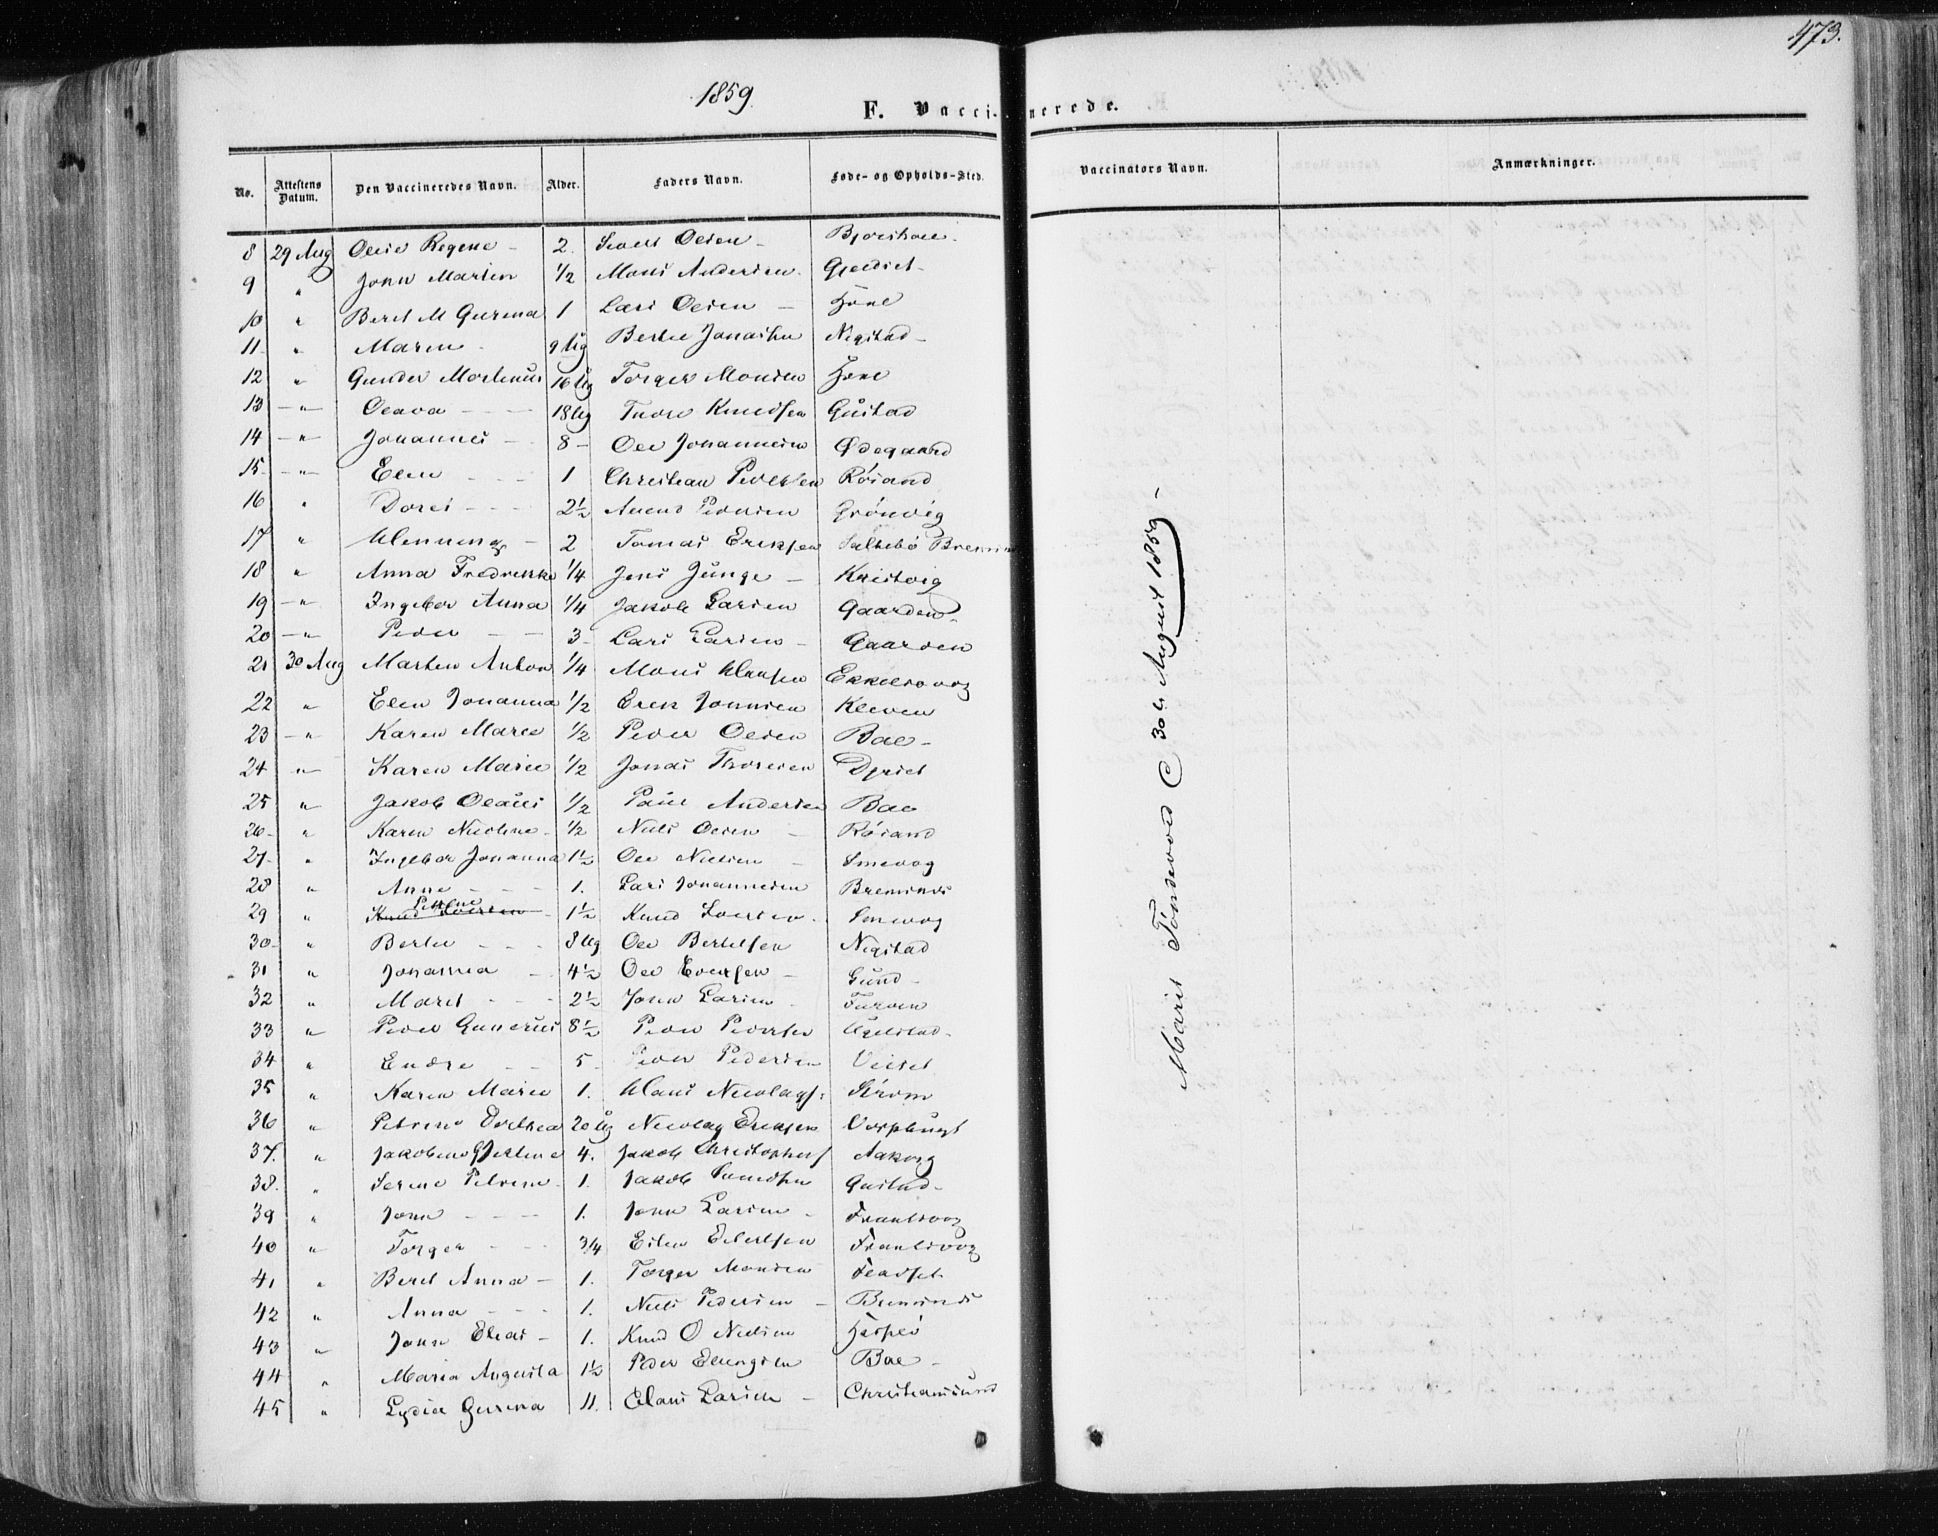 473.
1859
F. Vaccinerede.
No. Attestens Datum. Den Vaccineredes Navn. Alder. Faders Navn. Føde- og Opholds-Sted. Vaccinators Navn. Anmærkninger.
8 29 Aug Olise Regene - 2. Sivert Olsen -
9 " John Martin 1/2 Mons Andersen
10 " Beret M Gurina 1 Lars Olsen - Hoel
11 " Maren - 9 Ug Bertel Jonassen Negstad -
12 " Gunder Martinus 16 Ug Torger Monsen Hoel
13 - " Olava - - - 18 Ug Thore Knudsen Gustad
14 - " Johannes - 8 - Ole Johannesen Ødegaard
15 - " Elen - - - 1 Christian Pedersen Røsand
16 " Dorei - - - 2½ Amund Pedersen Grønvig
17 " Henning - 2 Tomas Eriksen Saltebø Bremsnes
18 " Anna Fredrikke 1/4 Jens Junge - Kristvig
19 - " Ingebor Anna 1/4 Jakob Larsen Gaarden -
20 - " Peder - - 3 - Lars Larsen - Gaarden
21 30 Aug Marten Anton 1/4 Mons Clausen Ekkelsvog
22 " Elen Johanna 1/2 Erik Johnsen Kleven
23 - " Karen Marie 1/2 Peder Olsen Bae -
24 " Karen Marie 1/2 Jonas Thoresen
25 " Jakob Olaus 1/2 Paul Andersen Bae
26 - " Karen Nicoline - 1/2 Niels Olsen - Røsand
27 - " Ingebor Johanna 1½ Ole Nielsen - Smevog
28 " Anne - - - 1. Lars Johannesen Bremsnes
29 " Petrine 1½ Knud Iversen - Smevog
30 - " Bertel - - - 8 Ug Ole Bertelsen Negstad
31 " Johanna - 4½ Ole Evensen - Gund -
32 " Maret - - - 2½ John Larsen - Farven
33 " Peder Gunerius 8½ Peder Pedersen Ugelstad -
34 " Endre - - 5 - Peder Pedersen Veiset
35 " Karen Marie 1. Claus Nicolays: Strøm
36 " Petrine Dorthea 20 Ug Nicolay Eriksen Vorpbugt
37. " Jakobine Gjertine 4. Jakob Christophers Aakvig
38. " Serine Petrine - 1. Jakob Gustad -
39 " John - - - 1. John Larsen - Frantsvog
40 " Torger - - - 3/4 Eilert Eilertsen Frantsvog
41 " Beret Anna - 1. Torger Monsen
42 " Anna - - - 1. Niels Pedersen - Bremsnes
43 " John Elias - 1. Knud O Nielsen Haspeø
44 " Maria Augusta 1½ Peder Ellingsen Bae -
45 " Lydia Gurina 11. Claus Larsen - Christiansund
Marit Tønsevold 30te August 1859 -